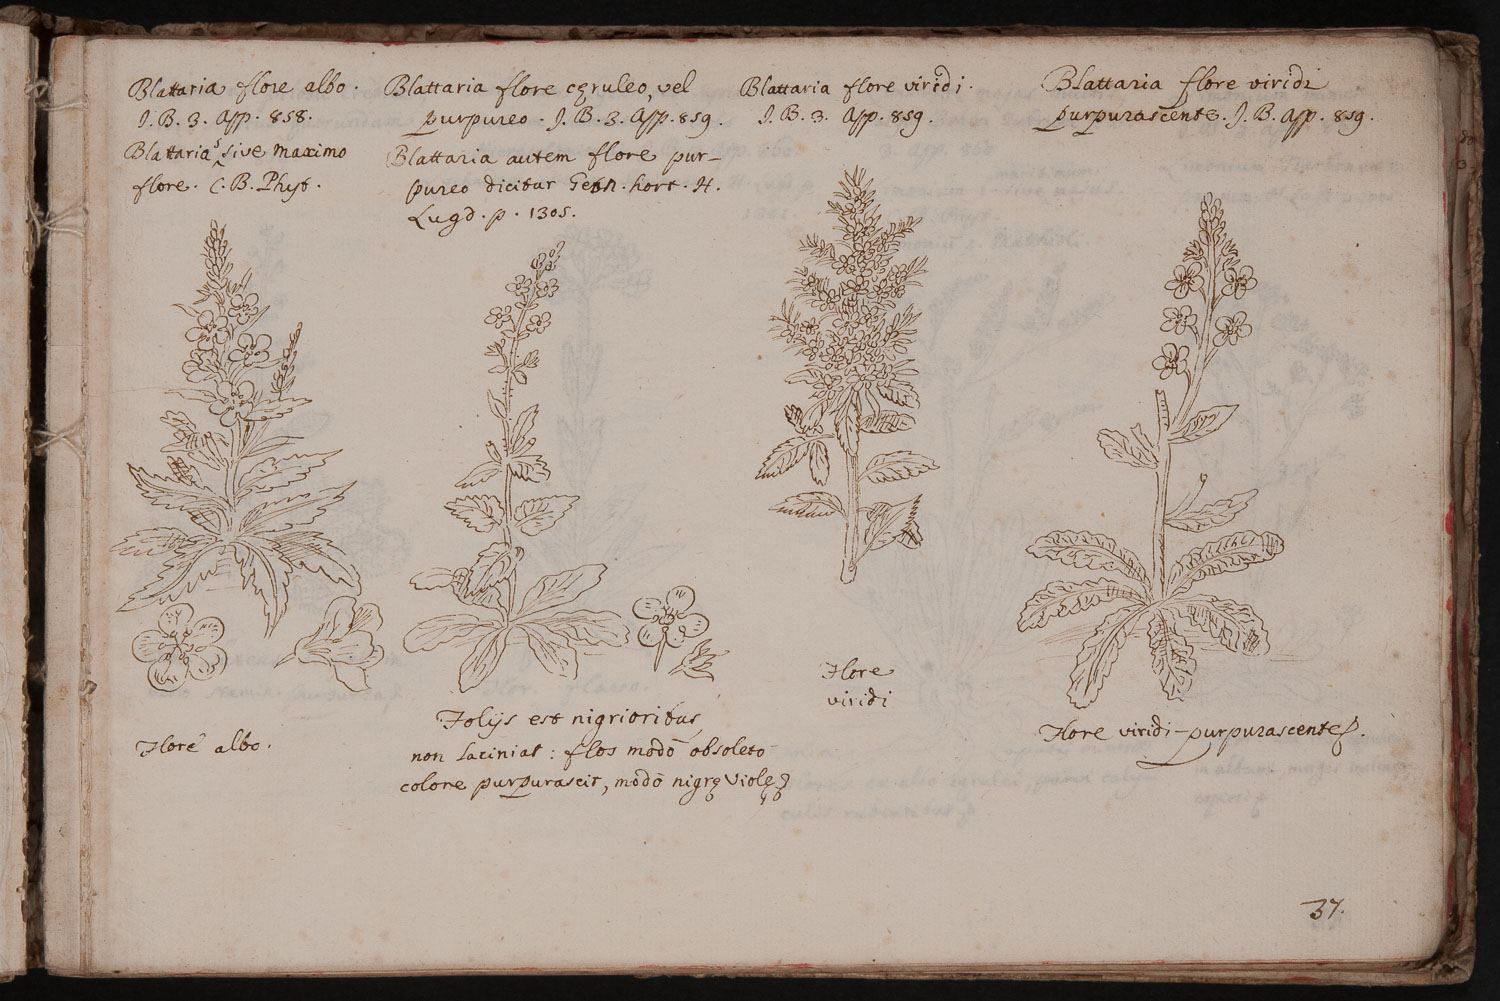 Blattaria flore albo.
J. B. 3. App. 858.
Blattaria sive maximo
flore. C. B. Phyt.
Flore albo.
Blattaria flore cęruleo, vel
purpureo. J. B. 3. App. 859.
Blattaria autem flore pur-
pureo dicitur Gesn. hort. H.
Lugd. p. 1305.
Folijs est nigrioribus
non laciniat: flos modò obsoleto
colore purpurascit, modò nigrę Violę
Blattaria flore viridi.
J. B. 3. App. 859.
Flore
viridi
Blattaria flore viridi
purpurascente. J. B. App. 859.
Flore viridi-purpurascente.
37.